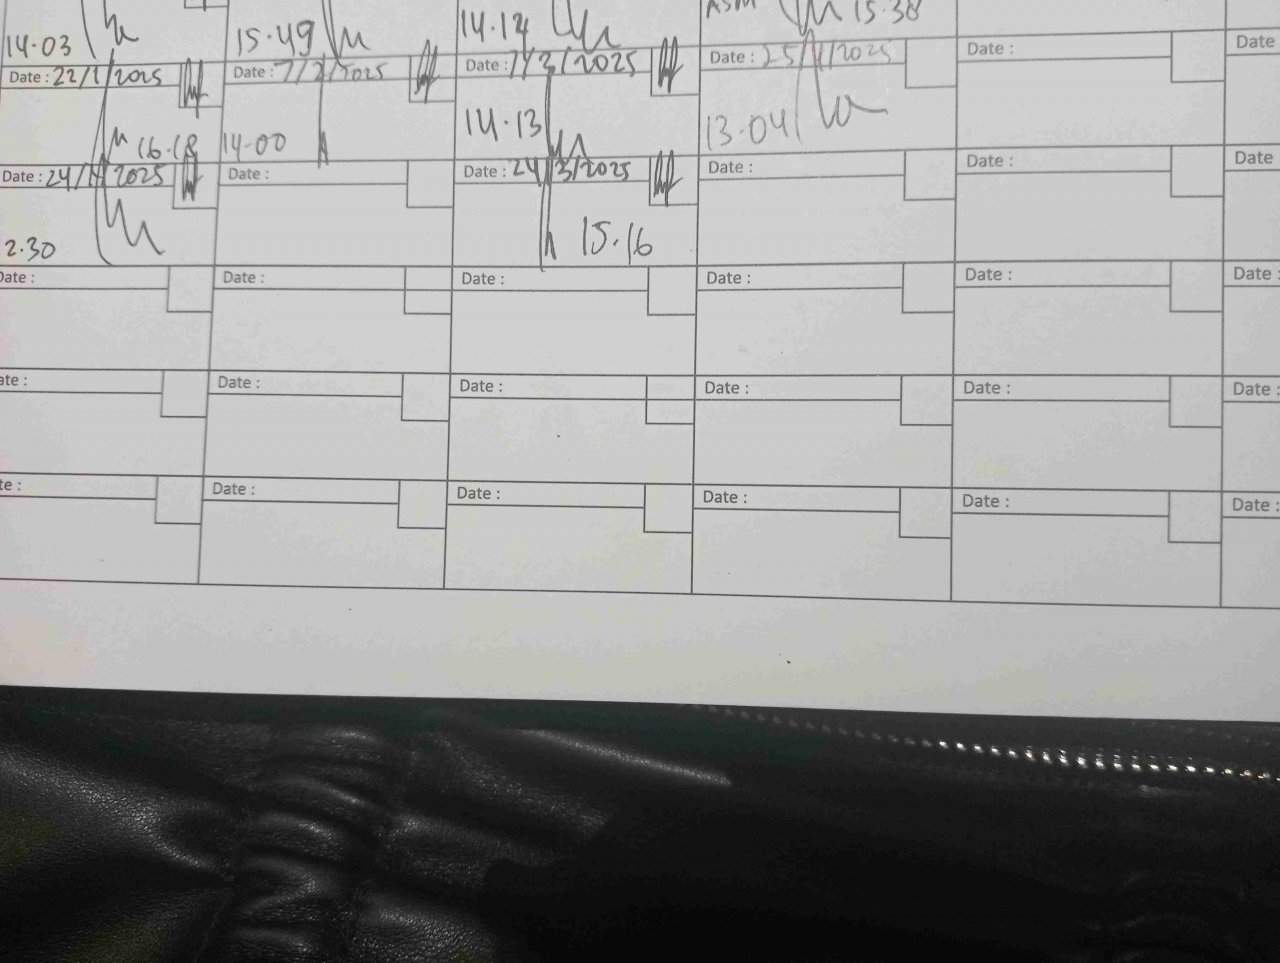 14.03 15.49 14.14 ASM 15.38
Date : 22/1/2025 Date : 7/2/2025 Date : 7/3/2025 Date : 25/4/2025 Date : Date
16.18 14.00 14.13 13.04
Date : 24/1/2025 Date : Date : 24/3/2025 Date : Date : Date
2.30 15.16
Date : Date : Date : Date : Date : Date :
ate : Date : Date : Date : Date : Date :
te : Date : Date : Date : Date : Date :